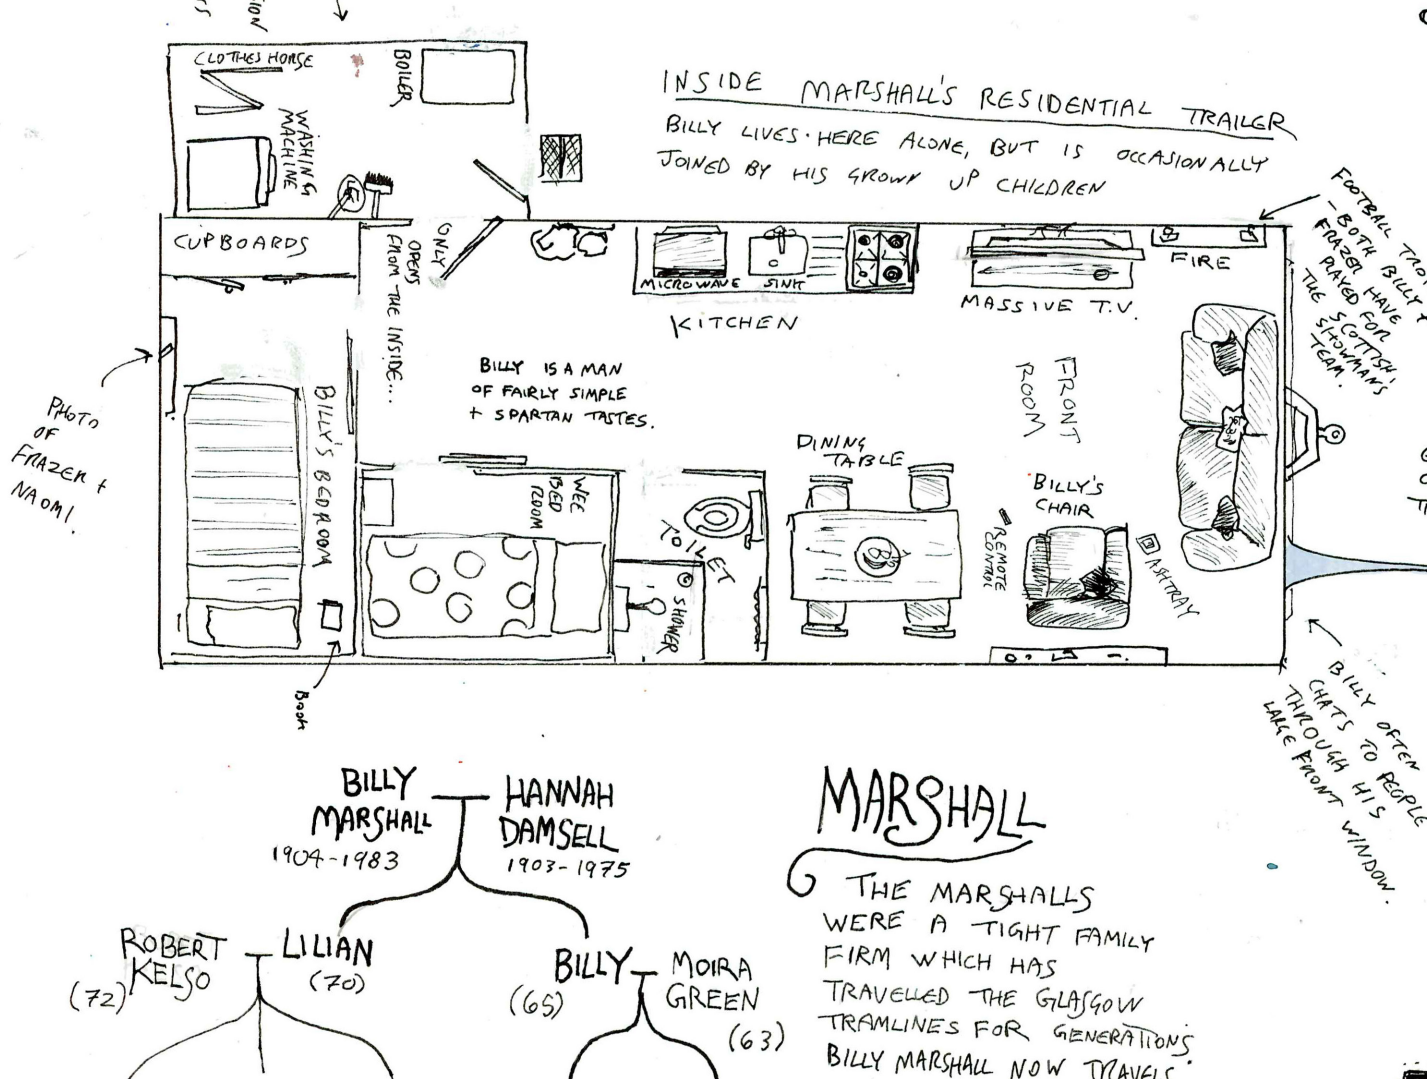 CLOTHES HORSE
BOILER
WASHING
MACHINE
INSIDE MARSHALL'S RESIDENTIAL TRAILER
BILLY LIVES HERE ALONE, BUT IS OCCASIONALLY
JOINED BY HIS GROWN UP CHILDREN
FOOTBALL
- BOTH BILLY +
FRAZER HAVE
PLAYED FOR
THE SCOTTISH
SHOWMAN'S
TEAM.
CUPBOARDS
ONLY
OPENS
FROM THE INSIDE...
MICROWAVE
SINK
KITCHEN
MASSIVE T.V.
FIRE
PHOTO
OF
FRAZER +
NAOMI.
BILLY'S BEDROOM
BILLY IS A MAN
OF FAIRLY SIMPLE
+ SPARTAN TASTES.
FRONT
ROOM
DINING
TABLE
WEE
BED
ROOM
TOILET
SHOWER
BILLY'S
CHAIR
REMOTE
CONTROL
ASHTRAY
Book
BILLY OFTEN
CHATS TO PEOPLE
THROUGH HIS
LARGE FRONT WINDOW.
BILLY
MARSHALL
1904-1983
HANNAH
DAMSELL
1903-1975
ROBERT
KELSO
(72)
LILIAN
(70)
BILLY
(65)
MOIRA
GREEN
(63)
MARSHALL
THE MARSHALLS
WERE A TIGHT FAMILY
FIRM WHICH HAS
TRAVELLED THE GLASGOW
TRAMLINES FOR GENERATIONS.
BILLY MARSHALL NOW TRAVELS